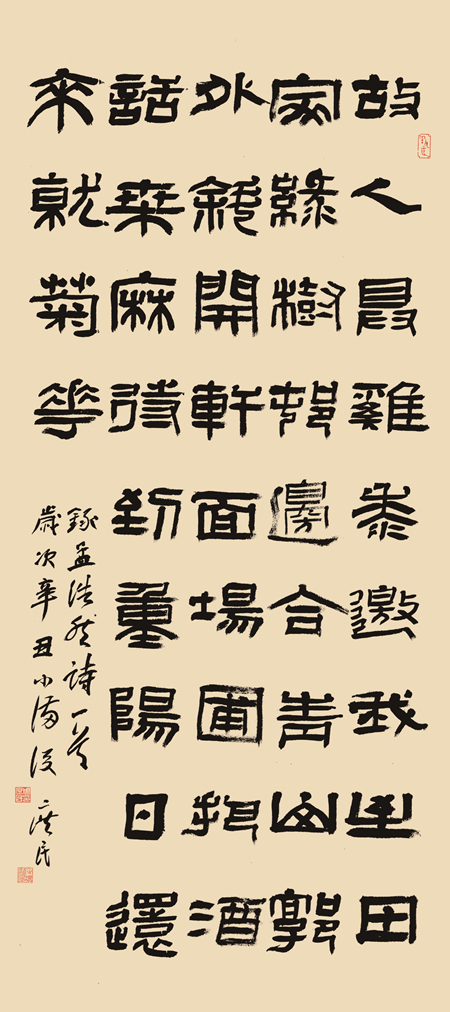 故人具雞黍邀我至田
家綠樹邨邊合青山郭
外斜開軒面場圃把酒
話桑麻待到重陽日還
來就菊華
錄孟浩然詩一首
歲次辛丑小滿後